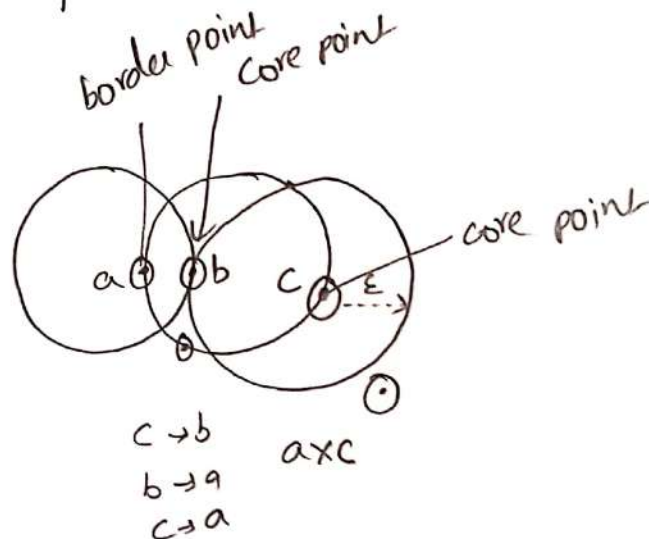 border point
core point
core point
a
b
c
ε
c → b
b → a
c → a
a x c